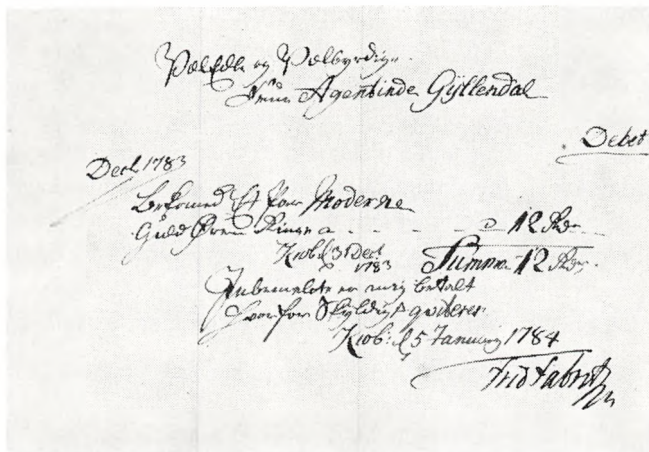 Vel Edle og Velbyrdige
Frue Agentinde Gyllendal
Debet
Decb 1783
Bekomed Et Par Moderne
Guld Øren Ringe a - - - - - 12 Rdr
Kiøb: d 31 Decb 1783 Summa 12 Rdr
Indbemelte er mig betalt
hvorfor Skyldigst qviterer
Kiøb: d 5 Januarij 1784
Frid Fabritz